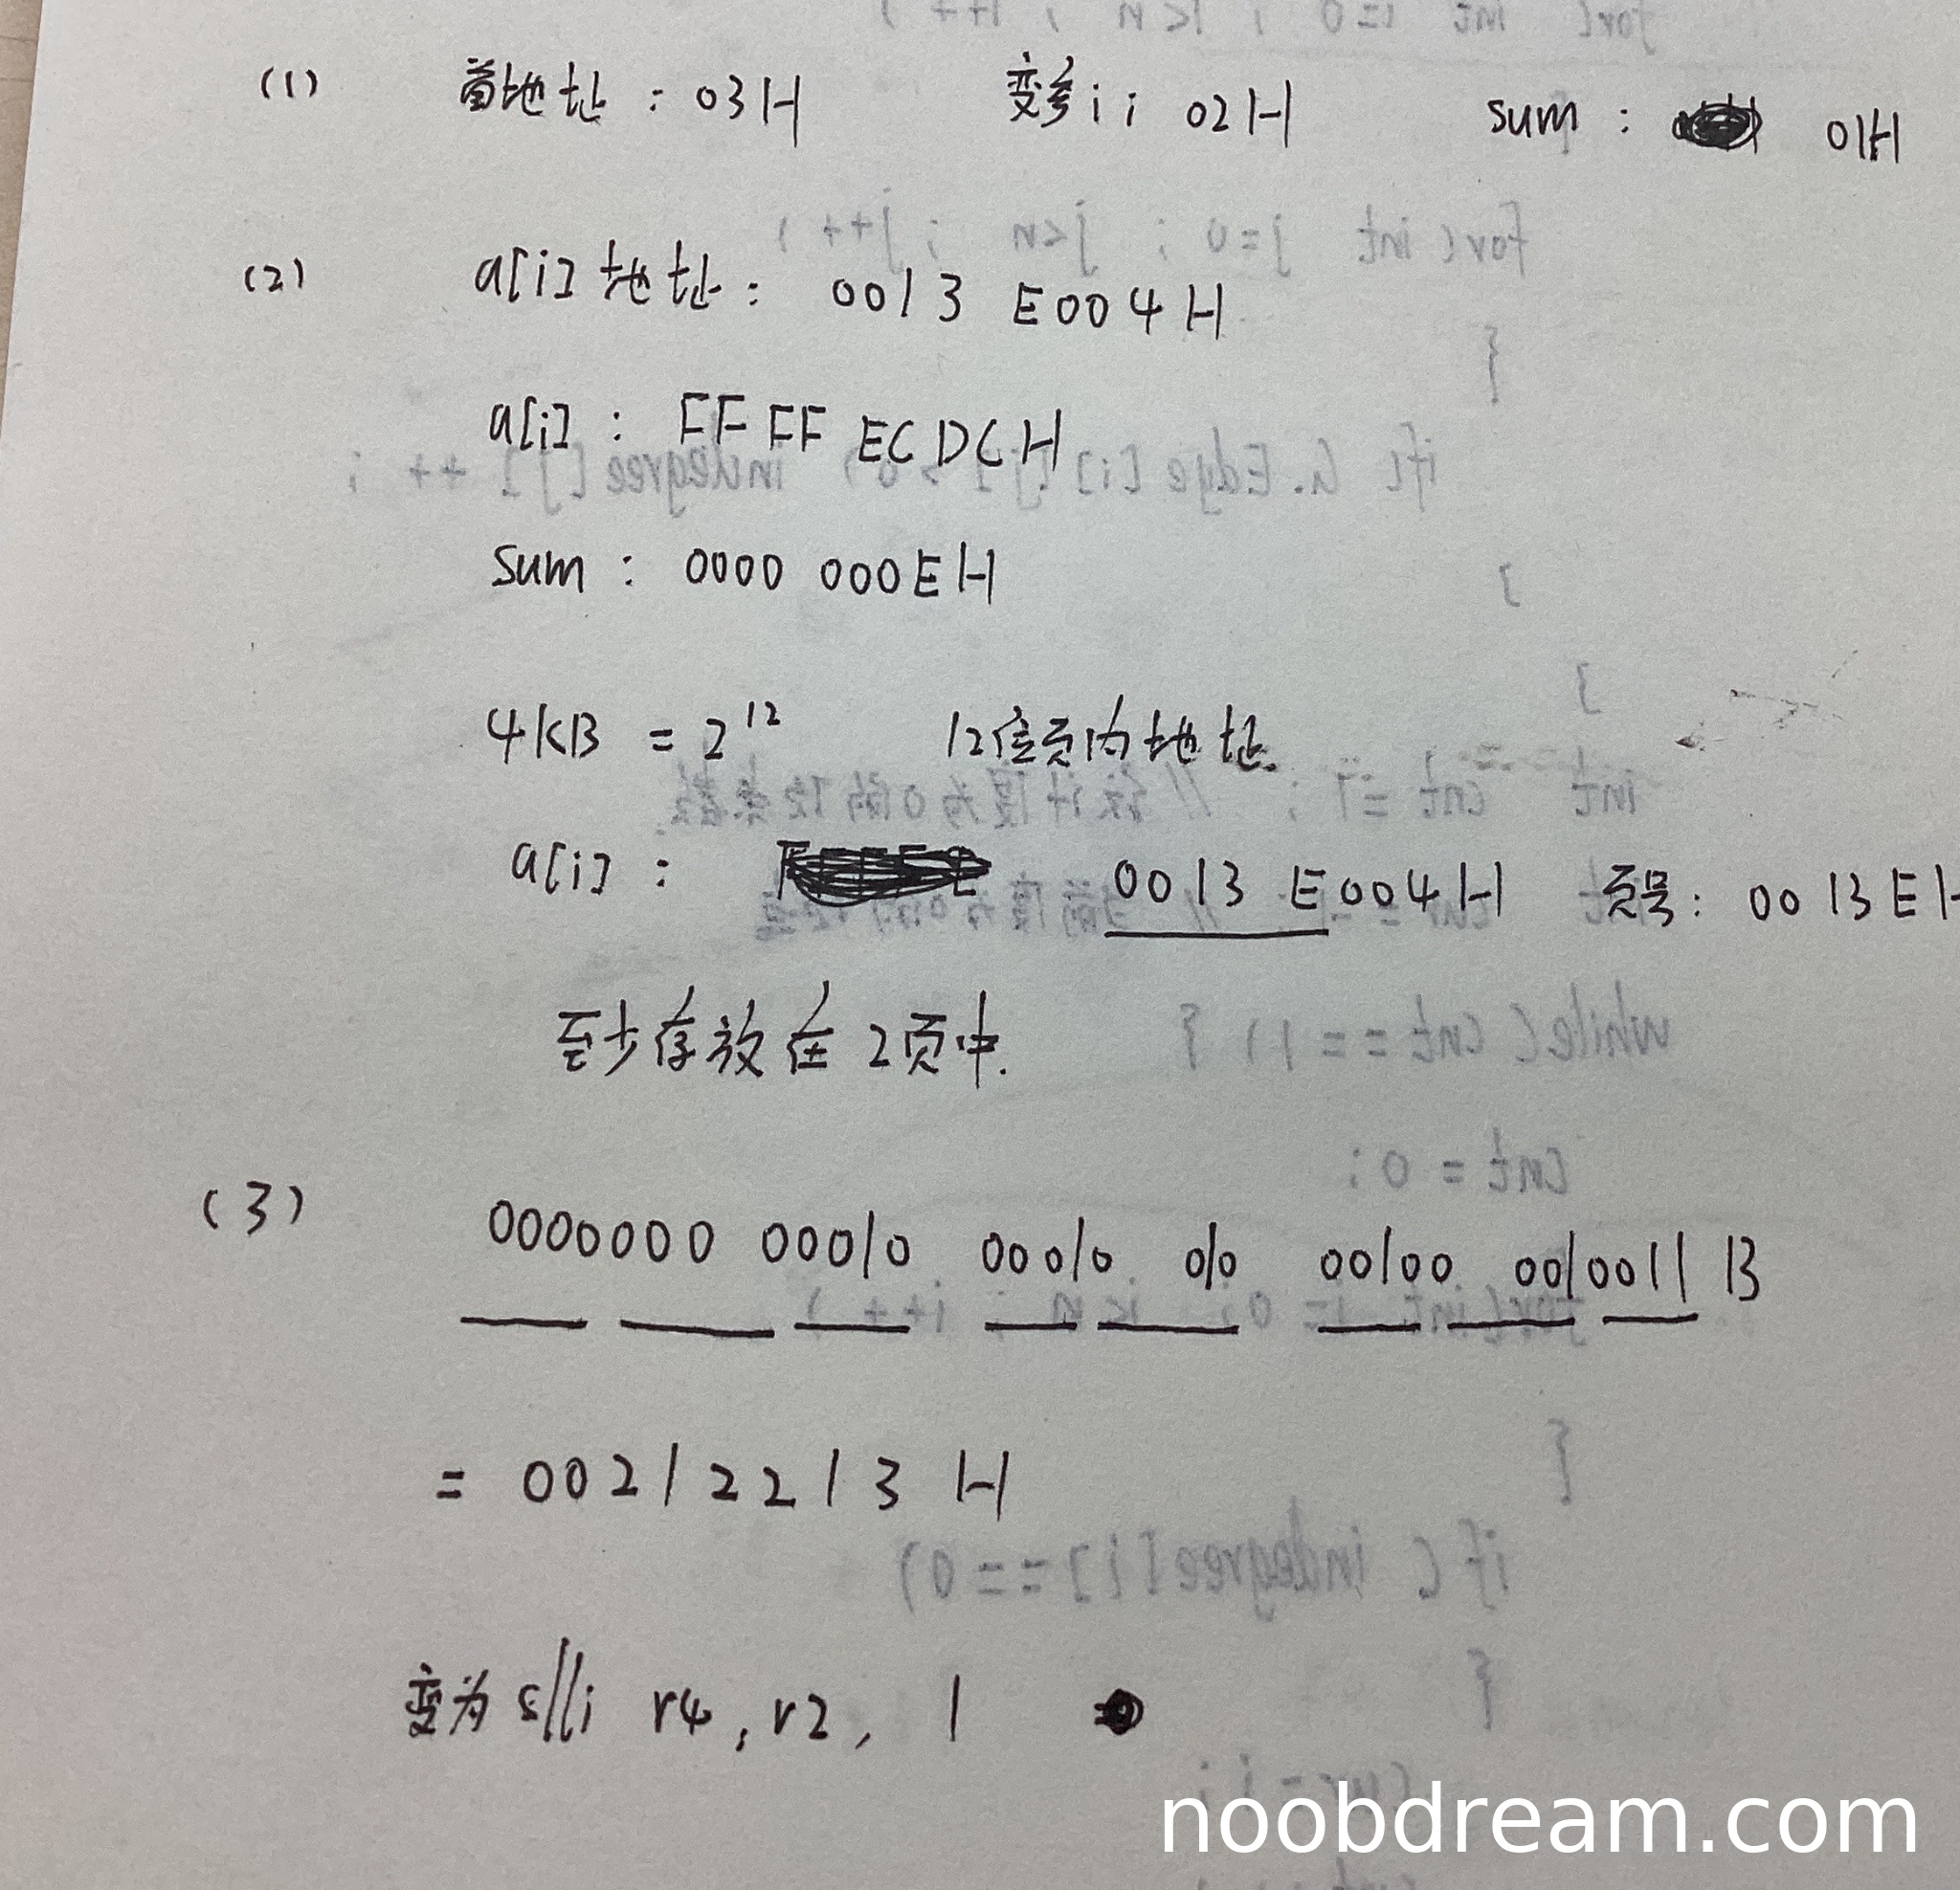 (1) 首地址：03H 变量i： 02H sum： 01H
(2) a[i]地址： 0013 E004H
a[i]： FFFF ECDCH
sum： 0000 000EH
4KB = 2^12 12位页内地址.
a[i]： 0013 E004H 页号：0013EH
至少存放在2页中.
(3) 0000000 00010 00010 010 00100 0010011 B
= 0021 2213 H
变为 slli r4, r2, 1
noobdream.com